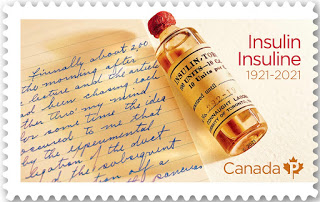 finally about 2.00
the morning after
lecture and the article
had been chasing each
ther thro' my mind
or some time the idea
occured to me that
by the experimental
ligation of the duct
and the subsequent
ation of a
pancreas
INSULIN-TOR
10 Units per
CONNAUGHT LABOR
Insulin
Insuline
1921-2021
Canada P